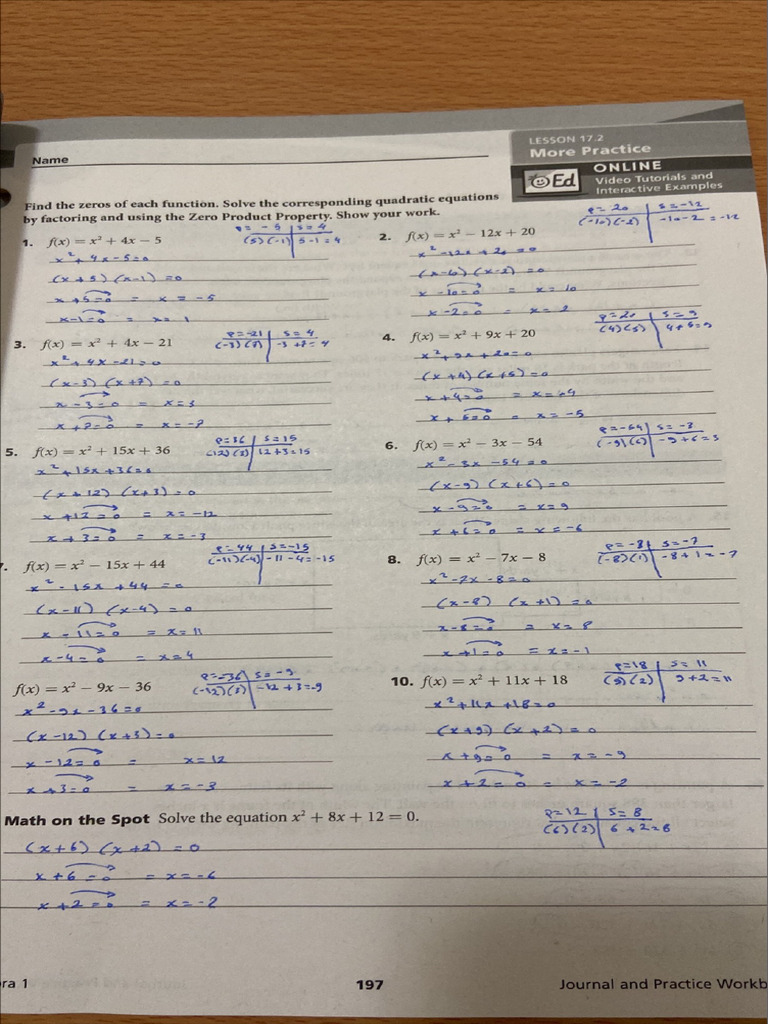 LESSON 17.2
More Practice
ONLINE
Ed
Video Tutorials and
Interactive Examples
Name
Find the zeros of each function. Solve the corresponding quadratic equations
by factoring and using the Zero Product Property. Show your work.
1. f(x) = x² + 4x − 5
P = -5 | S = 4
(5)(-1) | 5-1=4
x²+4x-5=0
(x+5)(x-1)=0
x+5=0 = x = -5
x-1=0 = x=1
2. f(x) = x² − 12x + 20
P = 20 | S = -12
(-10)(-2) | -10-2=-12
x²-12x+20=0
(x-2)=0
x-10=0 = x=10
x-2=0 = x=2
3. f(x) = x² + 4x − 21
P=-21 | S=4
(-3)(7) | -3+7=4
x²+4x-21=0
(x-3)(x+7)=0
x-3=0 = x=3
x+7=0 = x=-7
4. f(x) = x² + 9x + 20
P=20 | S=9
(4)(5) | 4+5=9
x²+9x+20=0
(x+4)(x+5)=0
x+4=0 = x=-4
x+5=0 = x=-5
5. f(x) = x² + 15x + 36
P=36 | S=15
(12)(3) | 12+3=15
x²+15x+36=0
(x+12)(x+3)=0
x+12=0 = x=-12
x+3=0 = x=-3
6. f(x) = x² − 3x − 54
P=-54 | S=-3
(-9)(6) | -9+6=3
x²-3x-54=0
(x-9)(x+6)=0
x-9=0 = x=9
x+6=0 = x=-6
. f(x) = x² − 15x + 44
P=44 | S=-15
(-11)(-4) | -11-4=-15
x²-15x+44=0
(x-11)(x-4)=0
x-11=0 = x=11
x-4=0 = x=4
8. f(x) = x² − 7x − 8
P=-8 | S=-7
(-8)(1) | -8+1=-7
x²-7x-8=0
(x-8)(x+1)=0
x-8=0 = x=8
x+1=0 = x=-1
f(x) = x² − 9x − 36
P=-36 | S=-9
(-12)(3) | -12+3=-9
x²-9x-36=0
(x-12)(x+3)=0
x-12=0 = x=12
x+3=0 = x=-3
10. f(x) = x² + 11x + 18
P=18 | S=11
(9)(2) | 9+2=11
x²+11x+18=0
(x+9)(x+2)=0
x+9=0 = x=-9
x+2=0 = x=-2
Math on the Spot Solve the equation x² + 8x + 12 = 0.
P=12 | S=8
(6)(2) | 6+2=8
(x+6)(x+2)=0
x+6=0 = x=-6
x+2=0 = x=-2
ra 1
197
Journal and Practice Workb